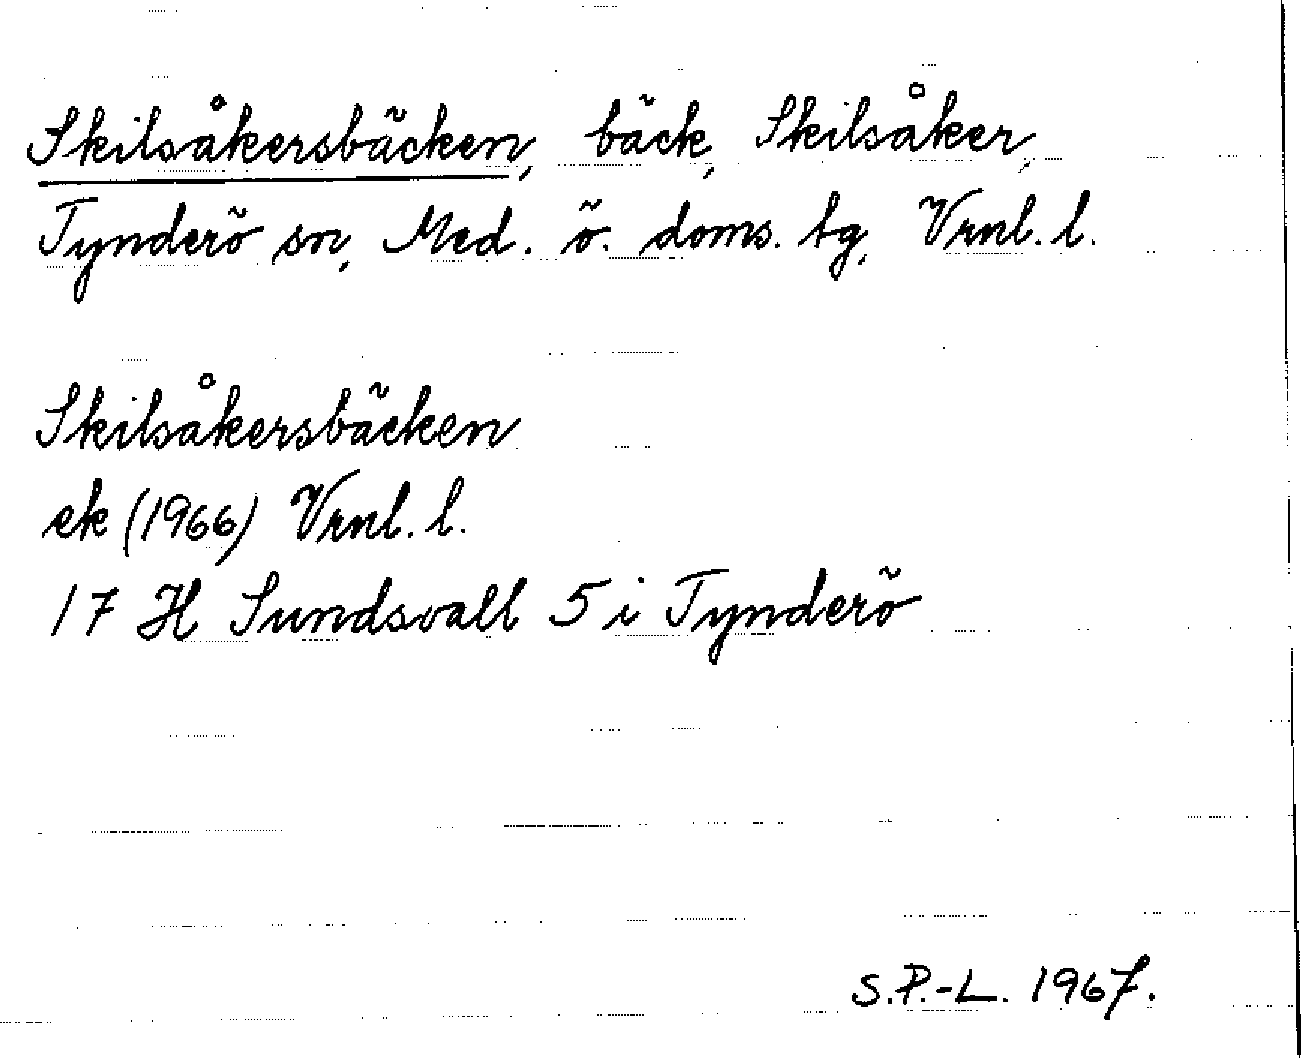 Skilsåkersbäcken, bäck, Skilsåker,
Tynderö sn, Med. ö. doms. tg, Vrnl. l.
Skilsåkersbäcken
ek (1966) Vrnl. l.
17 H Sundsvall 5 i Tynderö
S.P.-L. 1967.